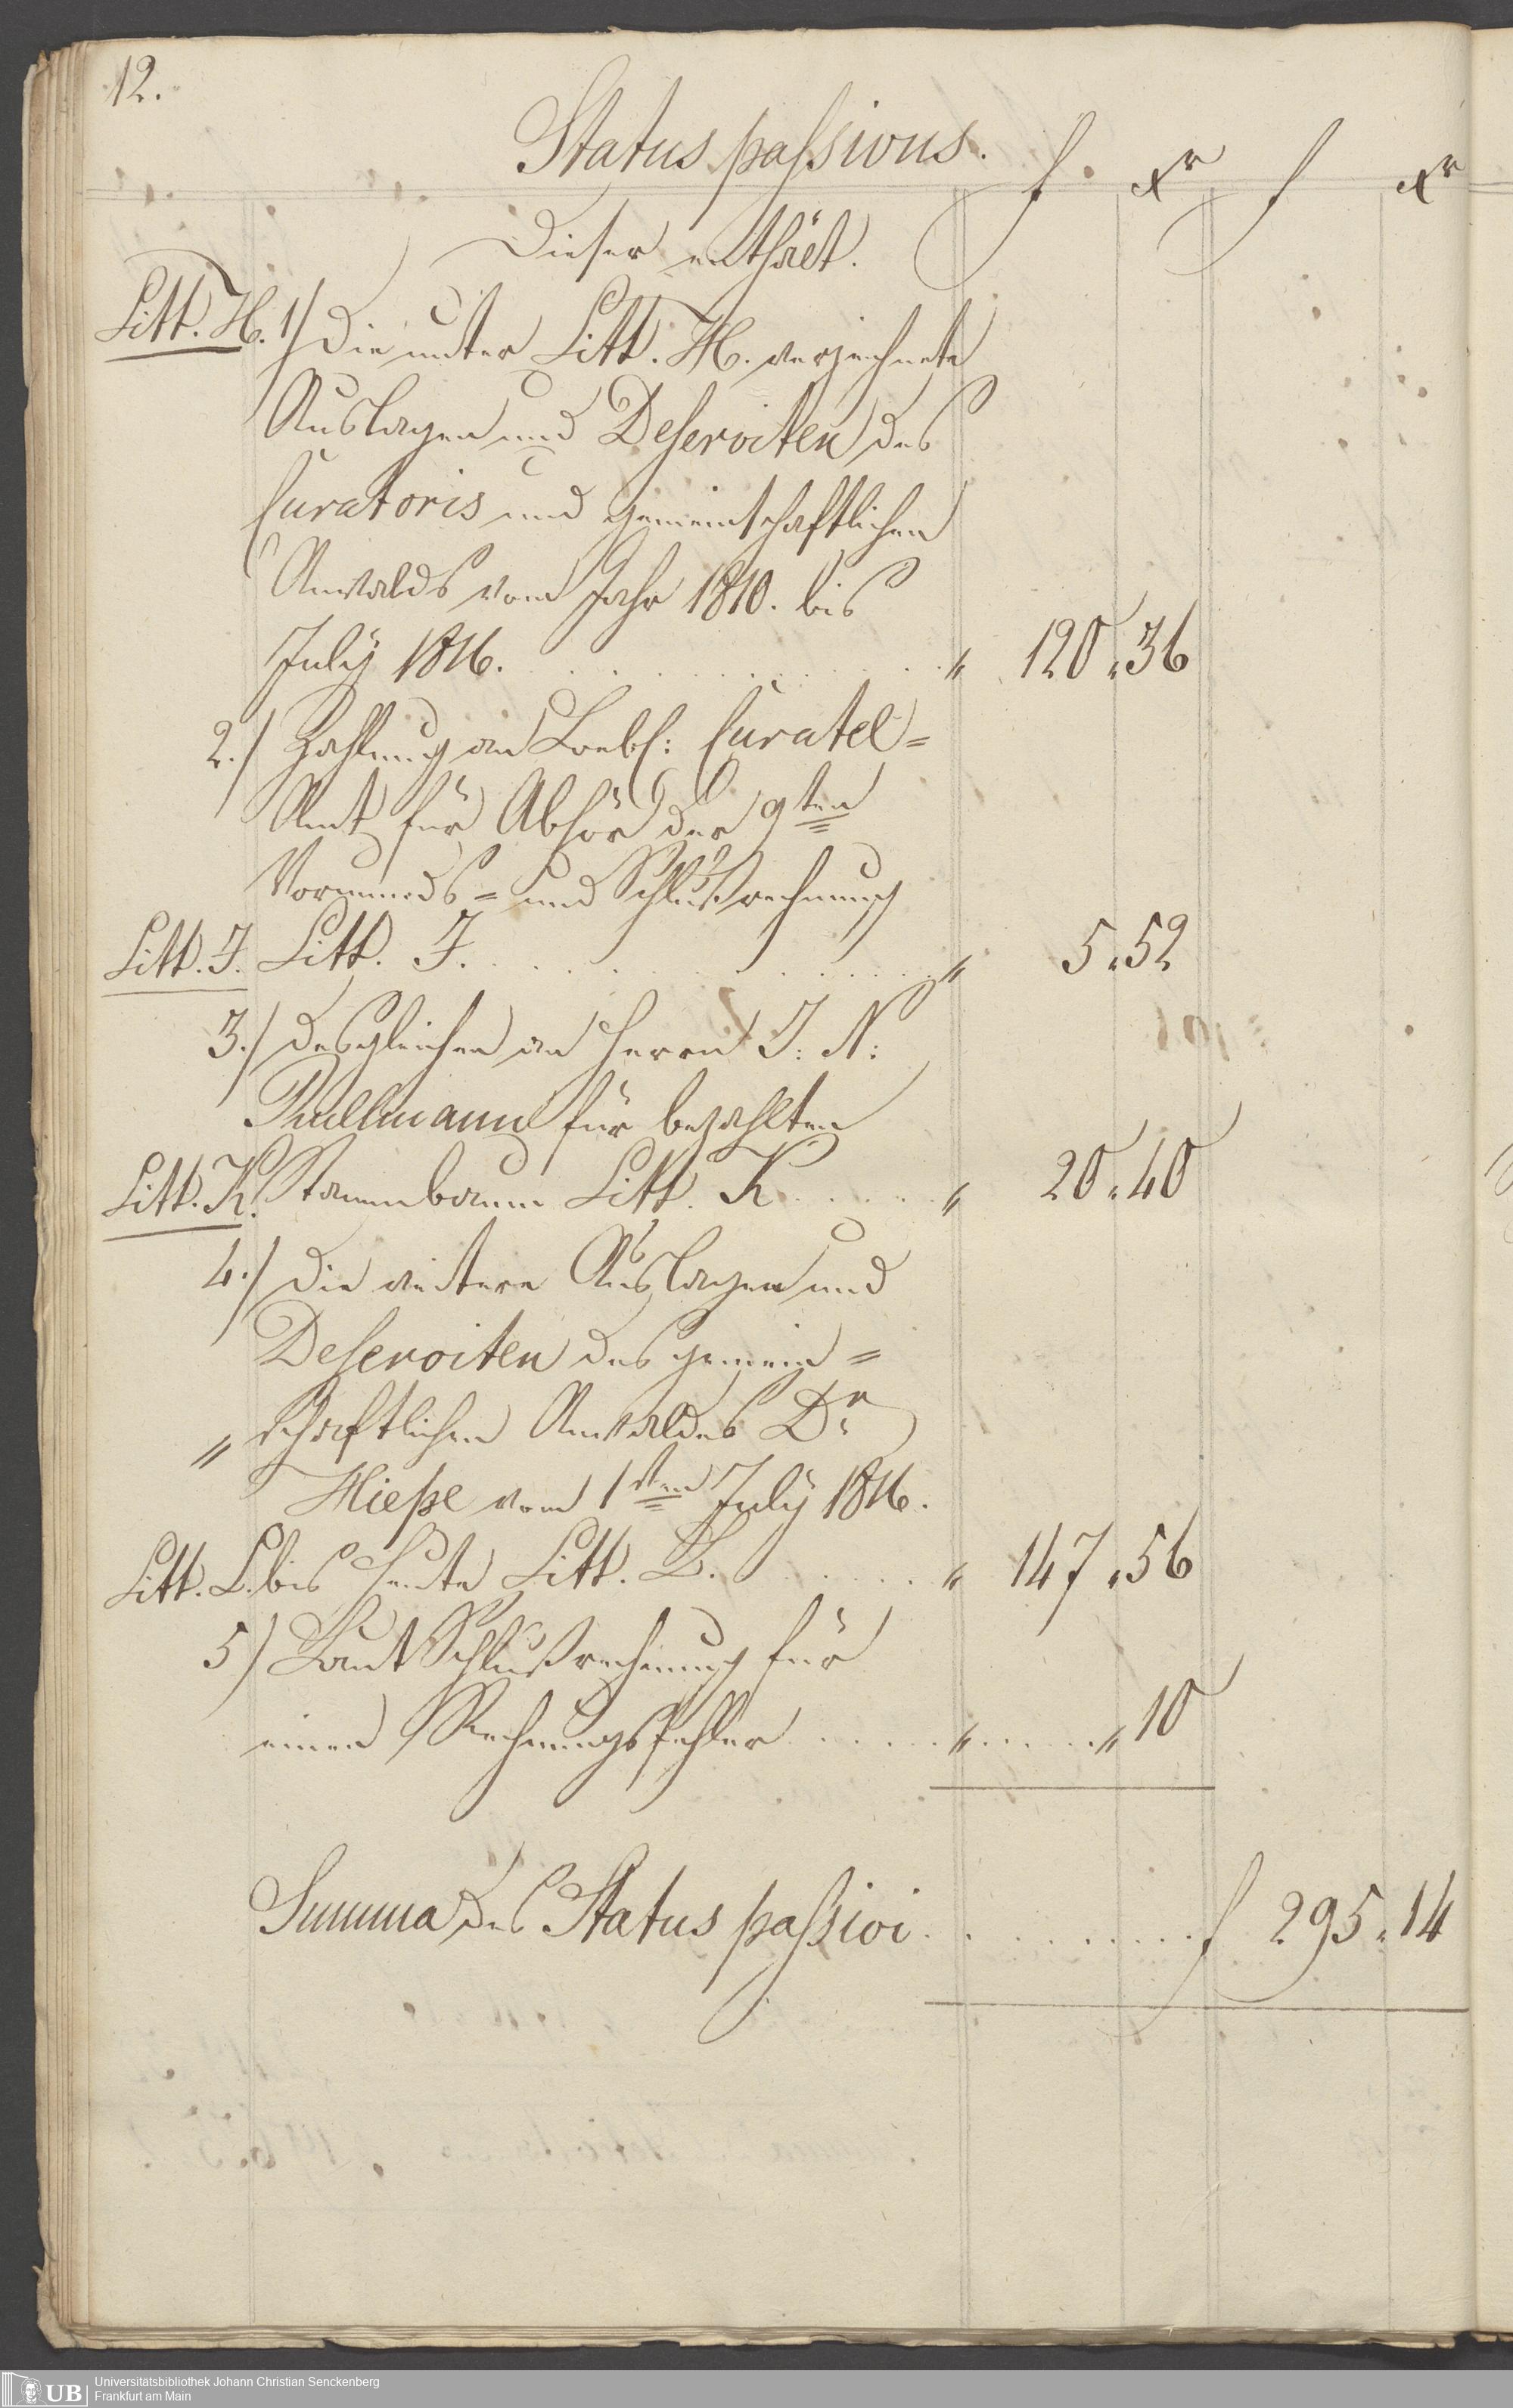 12.
Status passivus.
f xr f xr
Dieser enthält.
Litt. H. 1) Die unter Litt. H. verzeichnete
Auslagen und Deserviten des
Curatoris und gemeinschaftlichen
Anwalds vom Jahr 1810. bis
July 1816. . . . . . . . . . . „ 120 „ 36
2.) Zahlung an Loebl: Curatel=
Amt für Abhör der 9ten
Vormunds= und Schlußrechnung
Litt. J. Litt. J. . . . . . . . . . . . „ 5 „ 52
3.) desgleichen an Herrn J: N:
für bezahlten
Litt. K. Stammbaum Litt. K . . . . . „ 20 „ 40
4.) die weitere Auslagen und
Deserviten des gemein=
„ schaftlichen Anwaldes Dr.
vom 1ten July 1816.
Litt. L. bis heute Litt. L. . . . . . „ 147 „ 56
5) Laut Schlußrechnung für
einen Rechnungsfehler . . . . . „ . . . . . „ 10
Summa des Status passivi . . . . . . . . . f 295 „ 14
UB Universitätsbibliothek Johann Christian Senckenberg
Frankfurt am Main